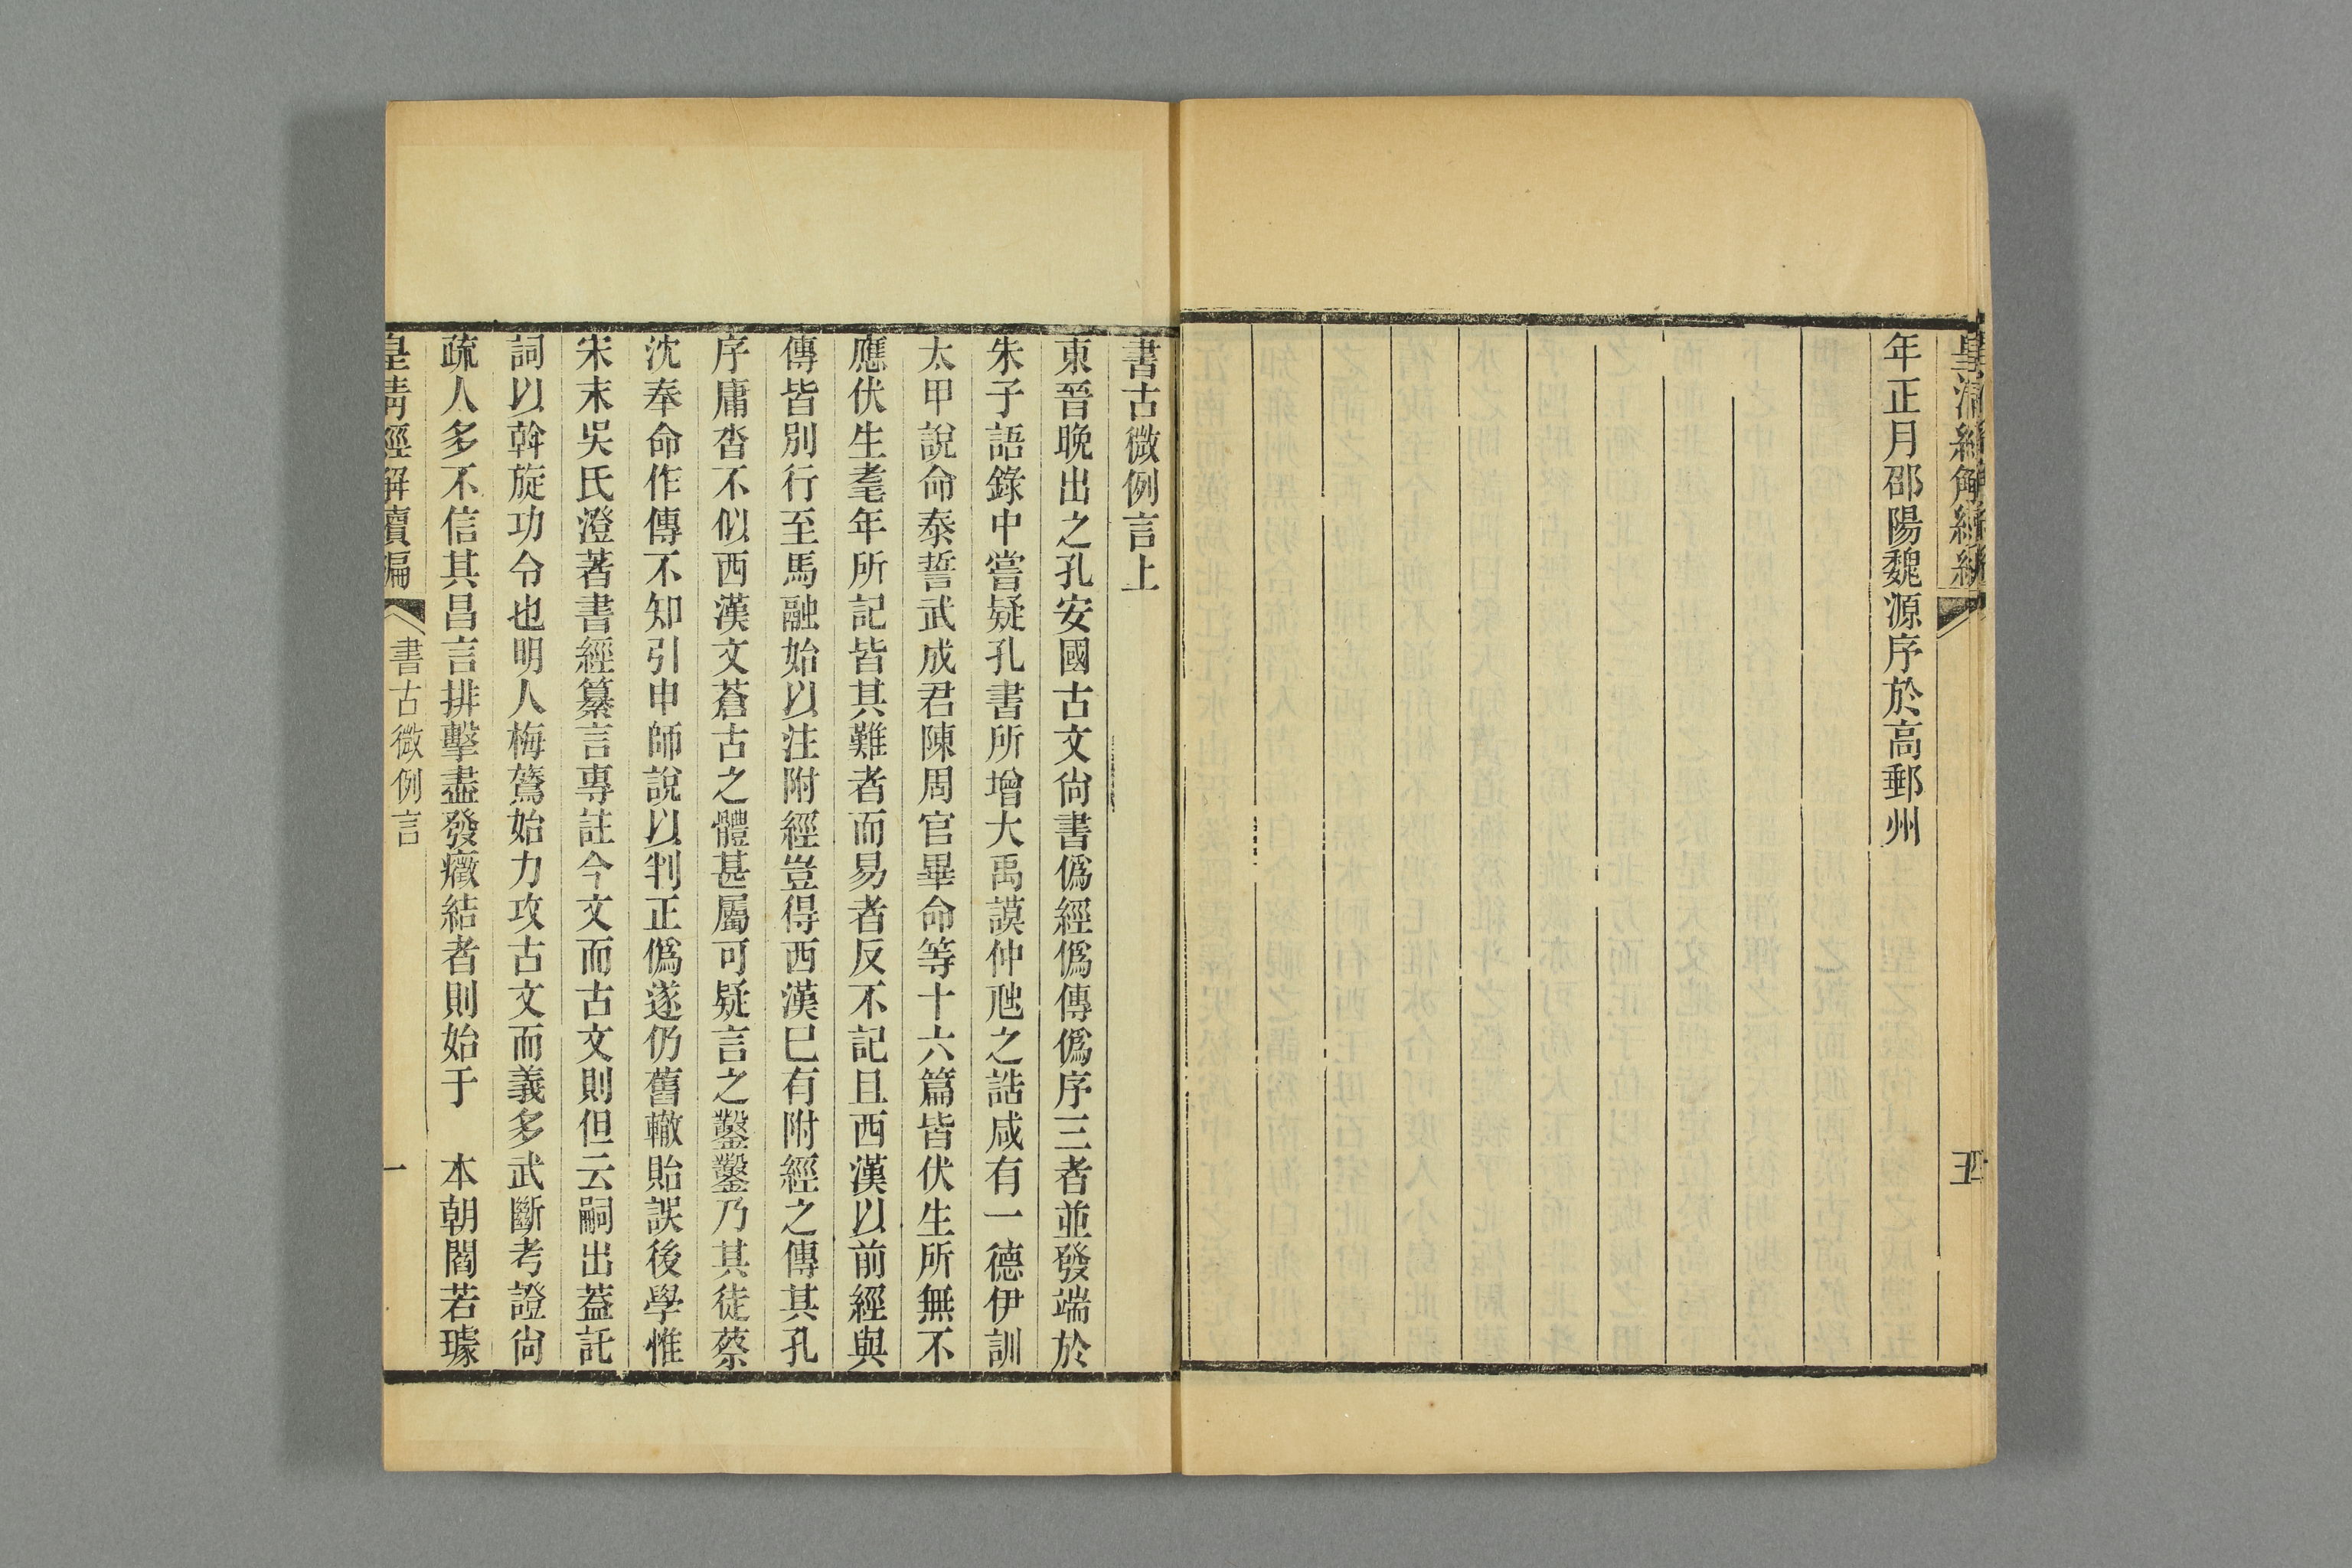 年正月邵陽魏源序於高郵州
書古微例言上
東晉晚出之孔安國古文尙書僞經僞傳僞序三者並發端於
朱子語錄中嘗疑孔書所增大禹謨仲虺之誥咸有一德伊訓
太甲說命泰誓武成君陳周官畢命等十六篇皆伏生所無不
應伏生耄年所記皆其難者而易者反不記且西漢以前經與
傳皆別行至馬融始以注附經豈得西漢巳有附經之傳其孔
序庸沓不似西漢文蒼古之體甚屬可疑言之鑿鑿乃其徒蔡
沈奉命作傳不知引申師說以判正僞遂仍舊轍貽誤後學惟
宋末吳氏澄著書經纂言專註今文而古文則但云嗣出葢託
詞以斡旋功令也明人梅鷟始力攻古文而義多武斷考證尙
疏人多不信其昌言排擊盡發癥結者則始于　本朝閻若璩
皇清經解續編　書古微例言　一